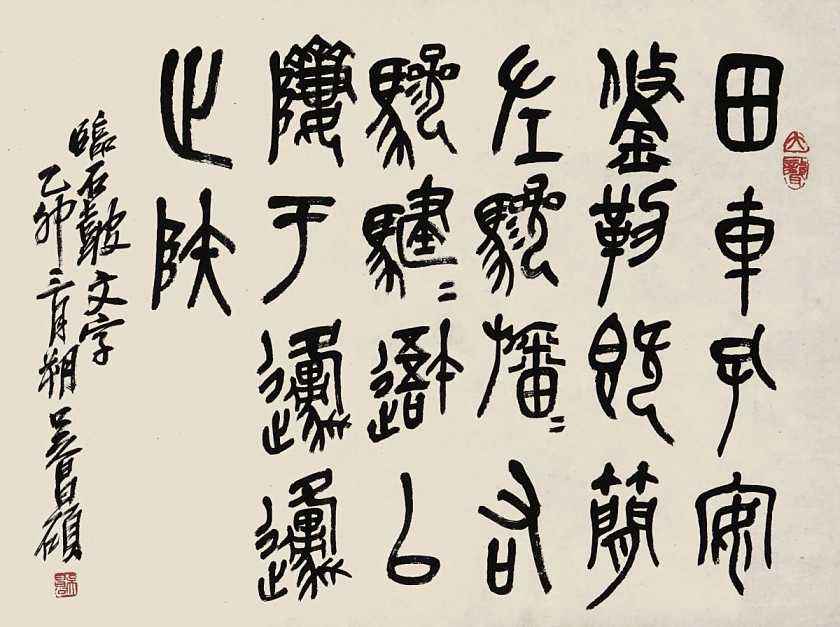 田車孔安
鋚勒既簡
左驂旛=右
驂騝=䢩以
隮于邍邍
止陕
臨石鼓文字
乙卯三月朔吳昌碩
大聾